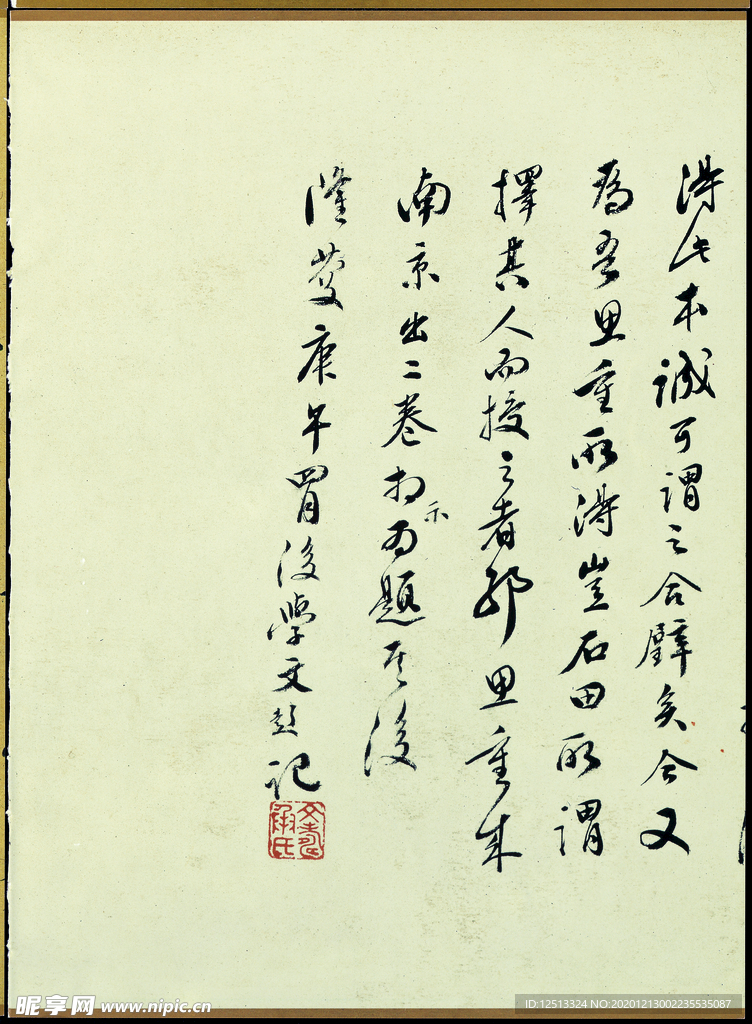 得此本誠可謂之合璧矣今又
為吾思重所得豈石田所謂
擇其人而授之者耶思重來
南京出二卷相示為題其後
隆慶庚午四月後學文彭記
昵享网 www.nipic.cn
ID:12513324 NO:20201213002235535087